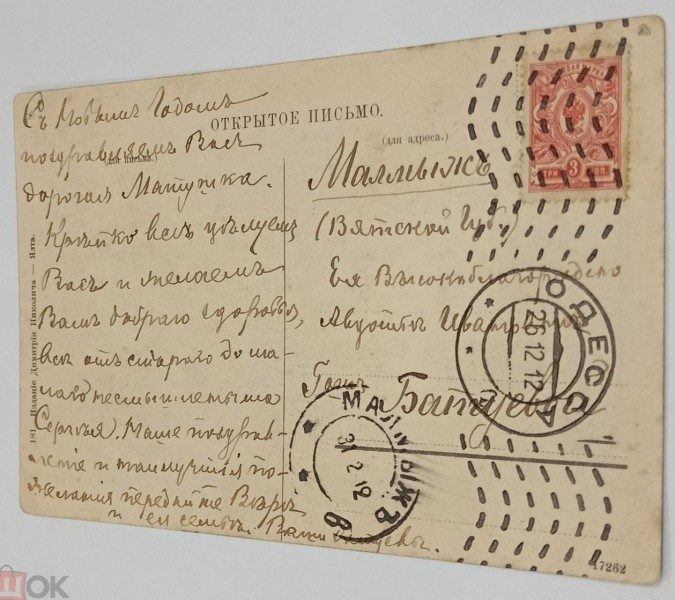 ОТКРЫТОЕ ПИСЬМО.
(для письма.)
(для адреса.)
Съ Новымъ Годомъ
поздравляемъ Васъ
дорогая Матушка.
Крѣпко всѣ цѣлуемъ
Васъ и желаемъ
Вамъ добраго здоровья,
всѣ отъ стараго до ма-
лаго
Сергѣя. Наше поздрав-
ленie и наилучшiя по-
желанiя передайте
и ея семьѣ.
Малмыжъ
(Вятской Губ.)
Ея Высокоблагородiю
Авдотьѣ Ивановнѣ
Гош. Батуевой
ТРИ 3 КОП
ОДЕССА
26.12.12
МАЛМЫЖЪ
31 12 12
в
181. Изданiе Димитрiя Николича — Ялта.
17262
ШОК